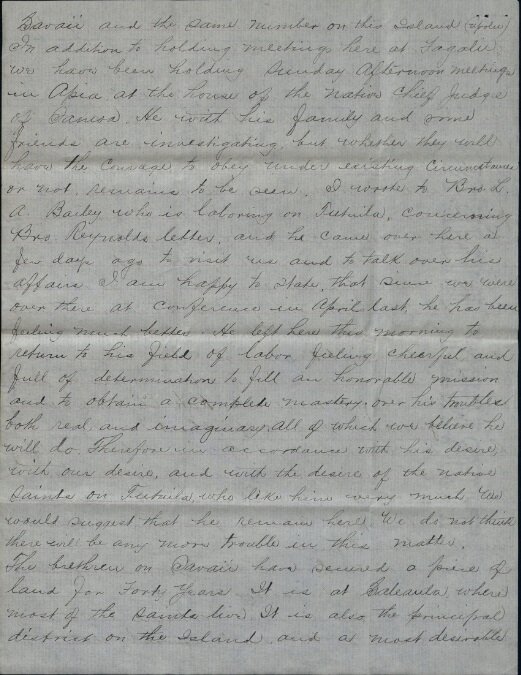 Savaii and the same number on this Island (Upolu)
In addition to holding meetings here at Fagalii
we have been holding Sunday Afternoon meetings
in Apia at the house of the native Chief Judge
of Samoa. He with his family and some
friends are investigating, but whether they will
have the courage to obey under existing circumstances
or not, remains to be seen. I wrote to Bro.
A. Bailey who is laboring on Tutuila, concerning
Bro. Reynolds letter, and he came over here a
few days ago to visit us and to talk over his
affairs I am happy to state, that since we were
over there at conference in April last he has been
feeling much better. He left here this morning to
return to his field of labor feeling cheerful and
full of determination to fill an honorable mission
and to obtain a complete mastery over his troubles
both real and imaginary. All of which we believe he
will do. Therefore in accordance with his desire
with our desire, and with the desire of the native
saints on Tutuila, who like him very much We
would suggest that he remain here We do not think
there will be any more trouble in this matter.
The brethren on Savaii have secured a piece of
land for Forty Years. It is at Saleaula where
most of the saints live. It is also the principal
district on the Island and a most desirable